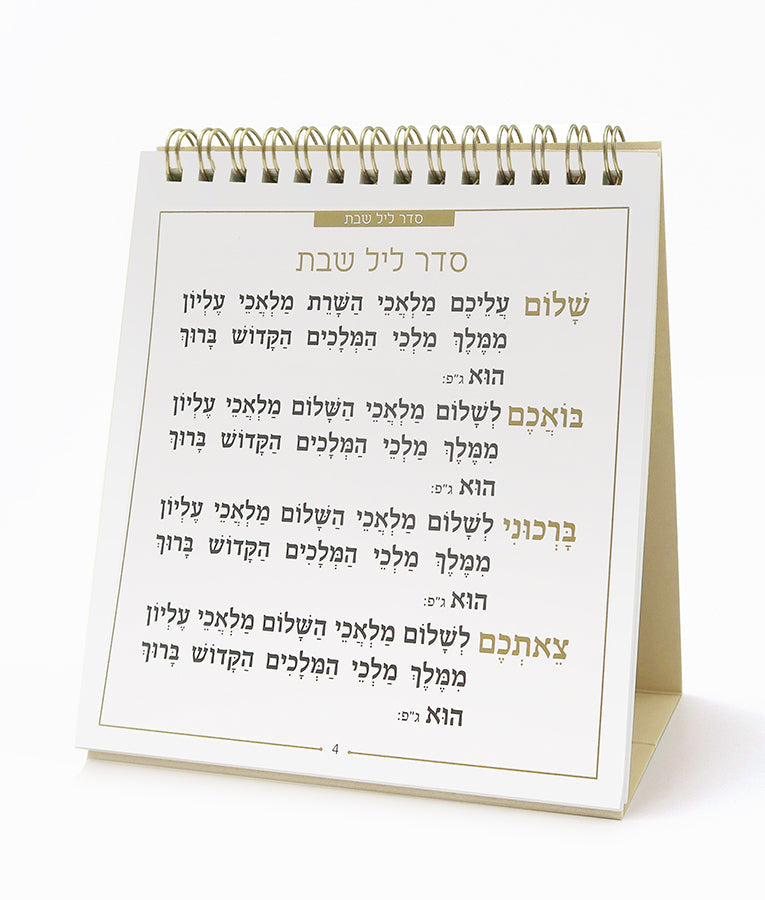 סדר ליל שבת
סדר ליל שבת
שָׁלוֹם עֲלֵיכֶם מַלְאֲכֵי הַשָּׁרֵת מַלְאֲכֵי עֶלְיוֹן
מִמֶּלֶךְ מַלְכֵי הַמְּלָכִים הַקָּדוֹשׁ בָּרוּךְ
הוּא ג"פ:
בּוֹאֲכֶם לְשָׁלוֹם מַלְאֲכֵי הַשָּׁלוֹם מַלְאֲכֵי עֶלְיוֹן
מִמֶּלֶךְ מַלְכֵי הַמְּלָכִים הַקָּדוֹשׁ בָּרוּךְ
הוּא ג"פ:
בָּרְכוּנִי לְשָׁלוֹם מַלְאֲכֵי הַשָּׁלוֹם מַלְאֲכֵי עֶלְיוֹן
מִמֶּלֶךְ מַלְכֵי הַמְּלָכִים הַקָּדוֹשׁ בָּרוּךְ
הוּא ג"פ:
צֵאתְכֶם לְשָׁלוֹם מַלְאֲכֵי הַשָּׁלוֹם מַלְאֲכֵי עֶלְיוֹן
מִמֶּלֶךְ מַלְכֵי הַמְּלָכִים הַקָּדוֹשׁ בָּרוּךְ
הוּא ג"פ:
4